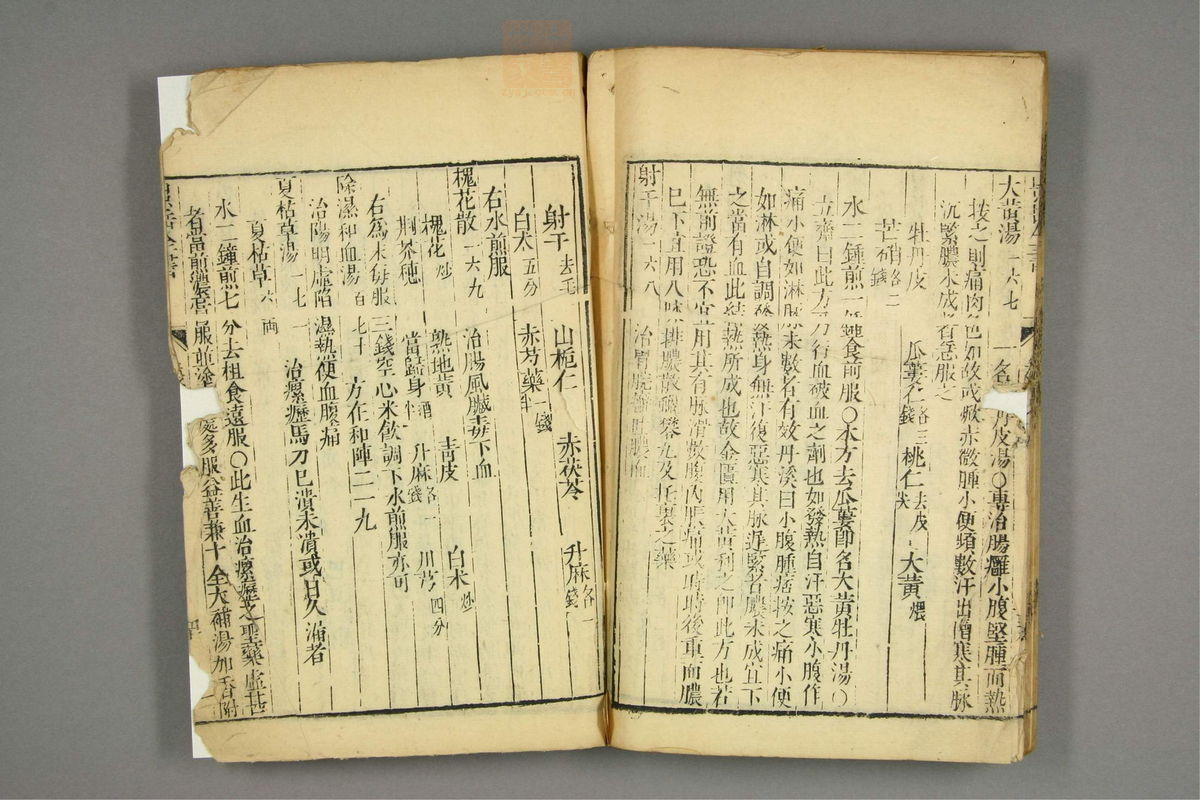 大黄湯一六七　一名　丹皮湯○專治腸癰小腹堅腫而熱
按之則痛肉色如故或㷌赤微腫小便頻數汗出憎寒其脉
沉緊膿未成者急服之
牡丹皮　瓜蔞仁各三錢　桃仁去皮尖　大黄煨
芒硝各二錢
水二鐘煎一鐘食前服○本方去瓜蔞卽名大黄牡丹湯○
立齋曰此方乃行血破血之劑也如發熱自汗惡寒小腹作
痛小便如淋脉未數者有效丹溪曰小腹腫痞按之痛小便
如淋或自調發熱身無汗復惡寒其脉遲緊者膿未成宜下
之當有血此結熱所成也故金匱用大黄利之卽此方也若
無前證恐不宜用其有脉滑數腹內脹痛或時時後重而膿
巳下宜用八味排膿散蠟礬丸及托裏之藥
射干湯一六八　治胃脘癰吐膿血
射干去毛　山梔仁　赤茯苓　升麻各一錢
白术五分　赤芍藥一錢半
右水煎服
槐花散一六九　治腸風臟毒下血
槐花炒　熟地黄　青皮　白术炒
荆芥穗　當歸身酒半　升麻各一錢　川芎四分
右為末每服三錢空心米飲調下水煎服亦可
除濕和血湯百七十　方在和陣二一九
治陽明虛陷濕熱便血腹痛
夏枯草湯一七一　治瘰癧馬刀巳潰未潰或日久漏者
夏枯草六兩
水二鐘煎七分去柤食遠服○此生血治瘰癧之聖藥虛甚
者當煎濃膏服并塗　處多服益善兼十全大補湯加香附